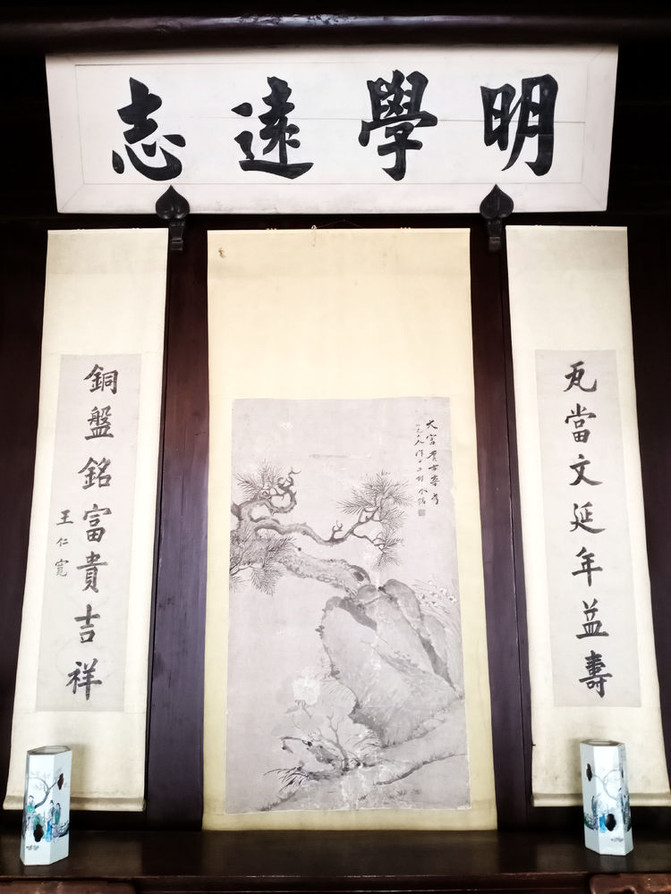 明學遠志
瓦當文延年益壽
大富貴亦壽考
銅盤銘富貴吉祥
王仁寬